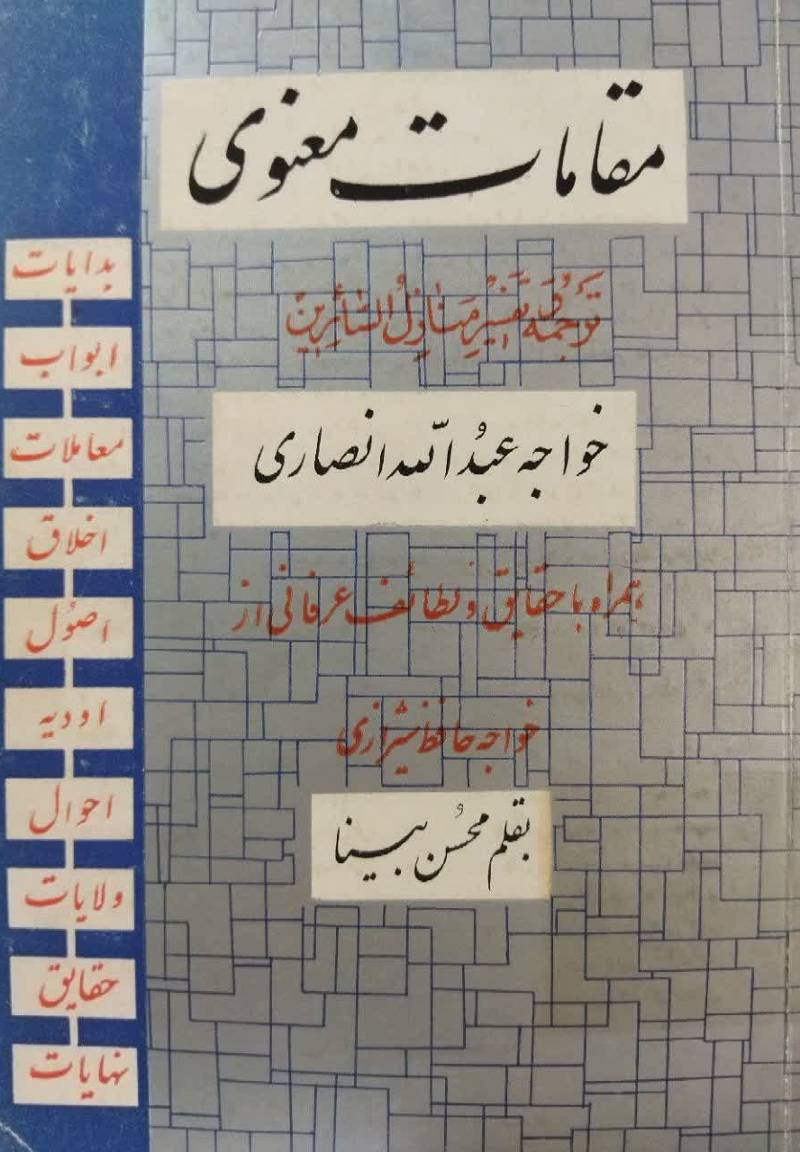 مقامات معنوی
ترجمه و تفسیر منازل السائرین
خواجه عبدُاللّه انصاری
همراه با حقایق و لطائف عرفانی از
خواجه حافظ شیرازی
بقلم محسن بینا
بدایات
ابواب
معاملات
اخلاق
اصول
اودیه
احوال
ولایات
حقایق
نهایات